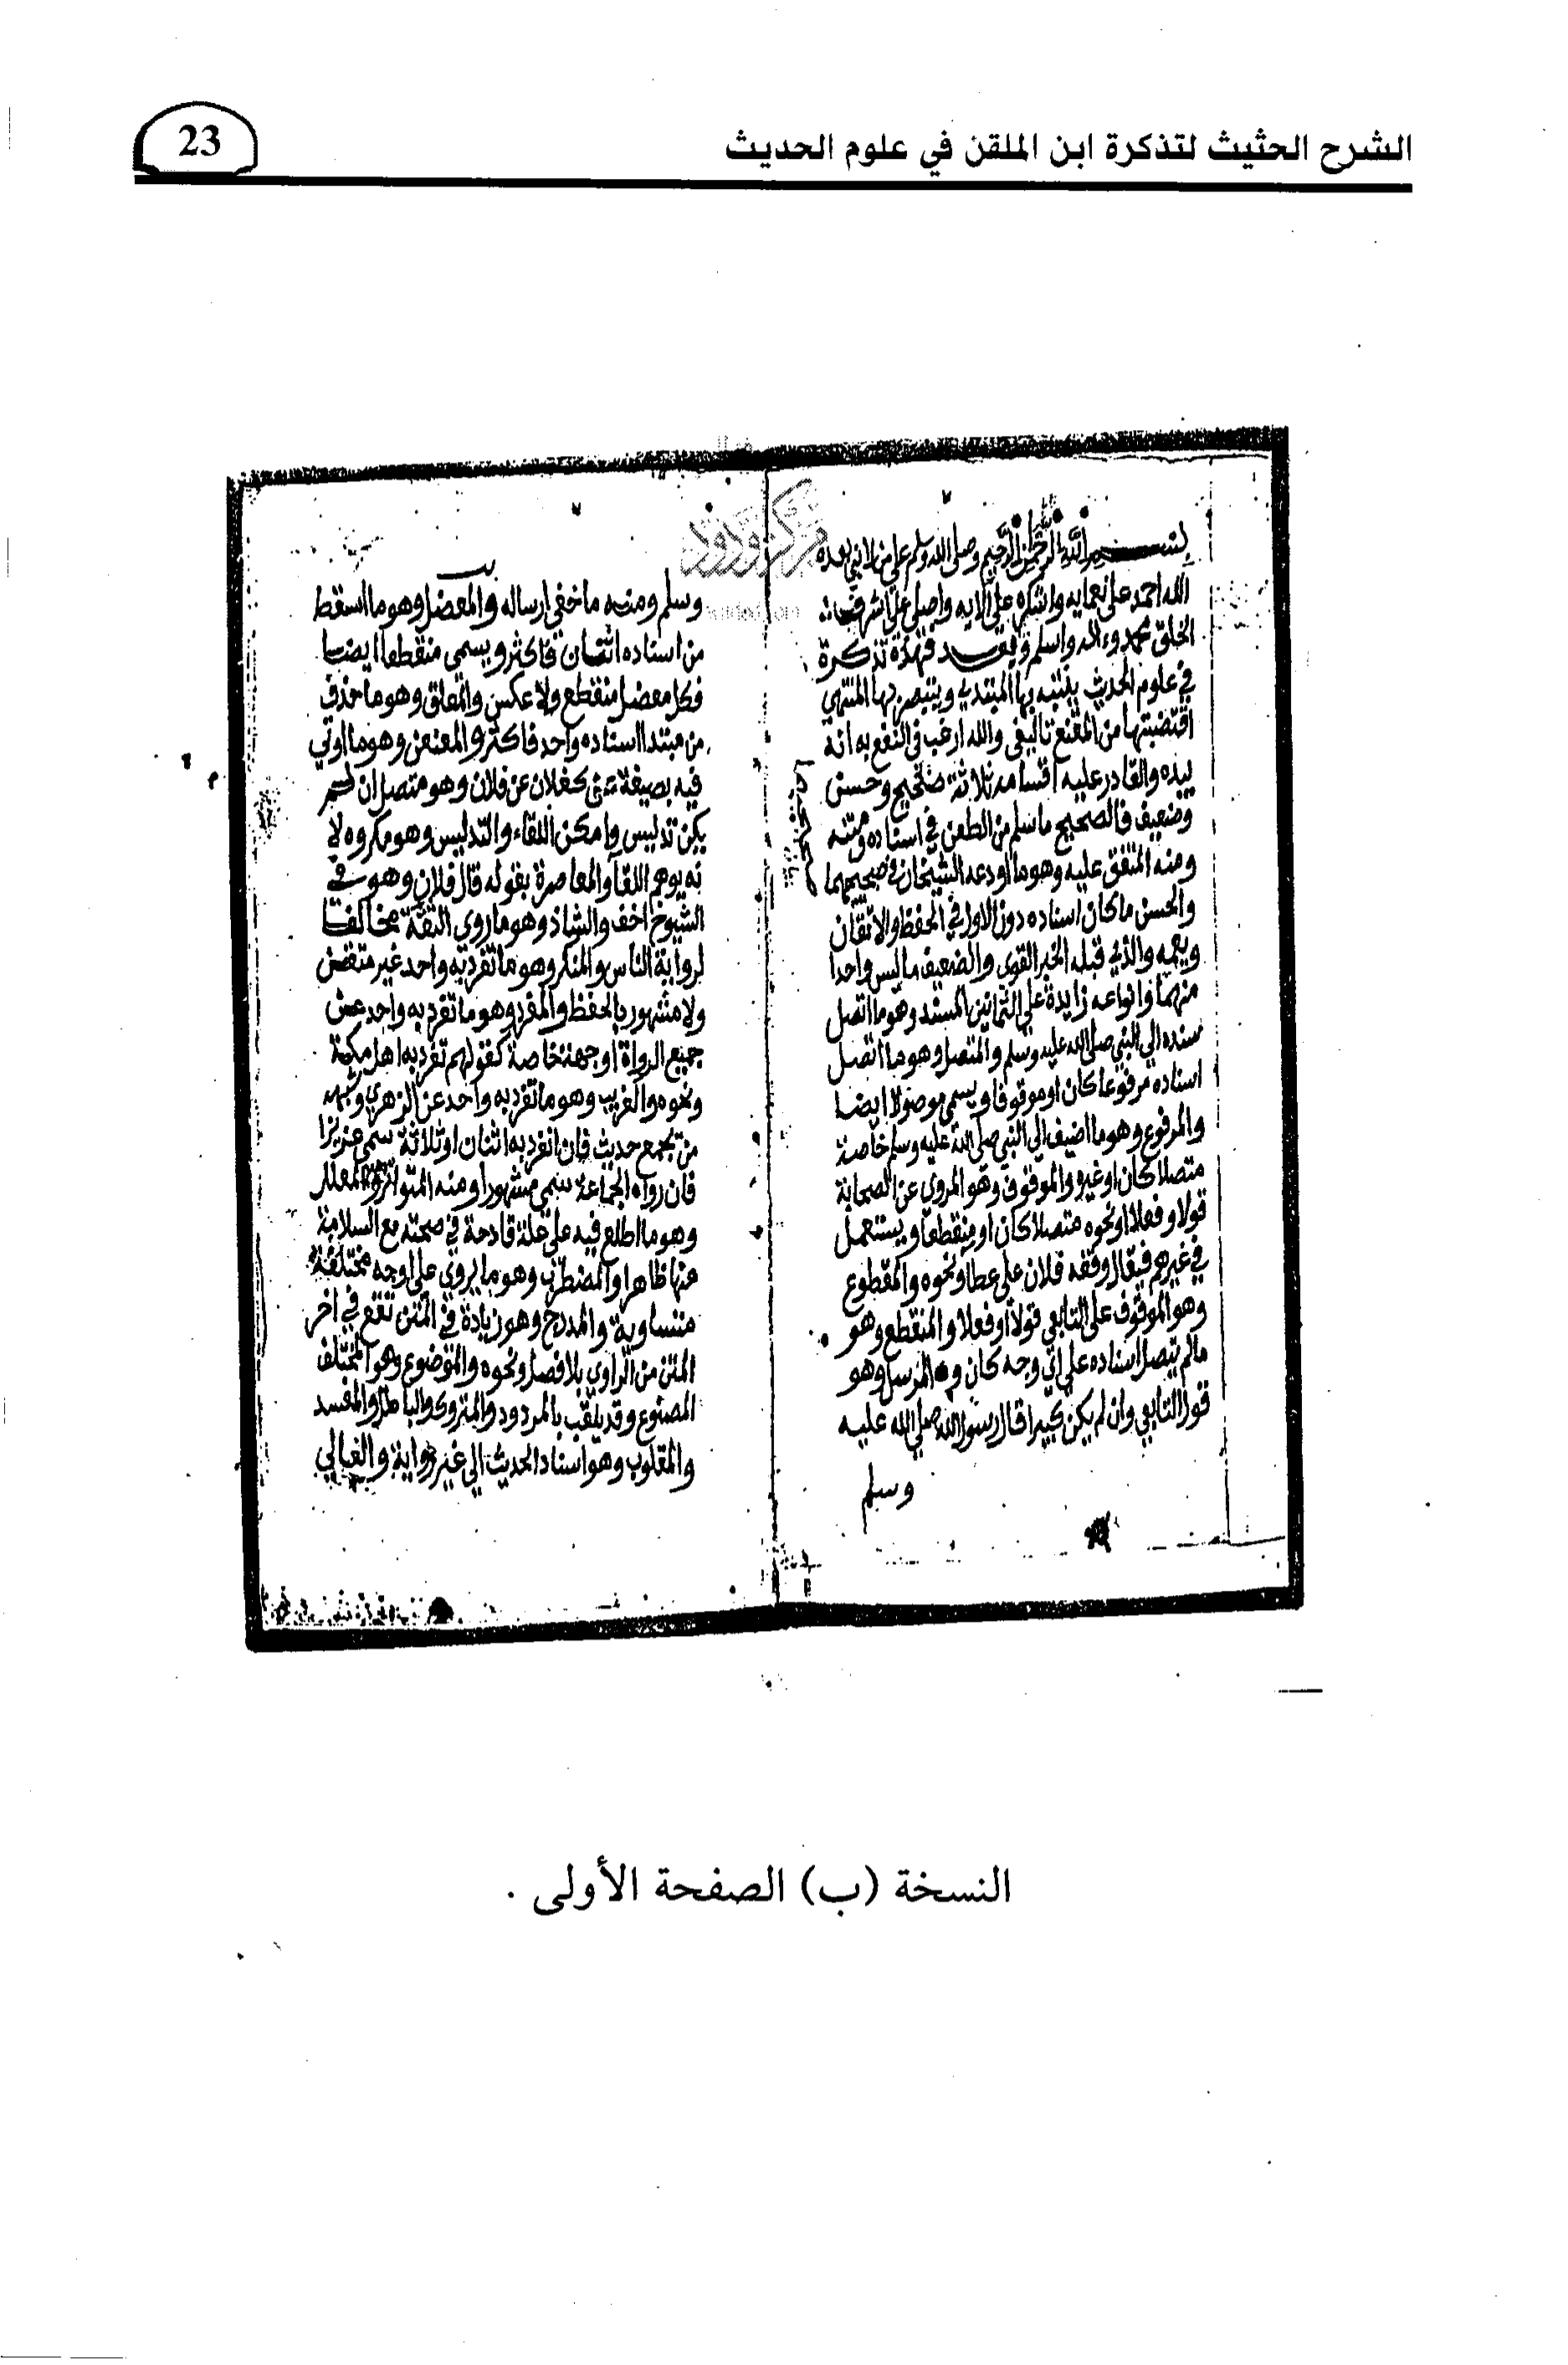 الشرح الحثيث لتذكرة ابن الملقن في علوم الحديث
23
بسم الله الرحمن الرحيم وصلى الله وسلم على من لا نبي بعده
الله احمد على نعمايه واشكره على الايه واصلي على اشرف
الخلق محمد وءاله واسلم وبعد فهذه تذكرة
في علوم الحديث يتنبه بها المبتدي ويتبصر بها المنتهي
اقتضبتها من المقنع تاليفي والله ارغب في النفع به انه
بيده والقادر عليه اقسامه ثلاثة صحيح وحسن
وضعيف فالصحيح ما سلم من الطعن في اسناده ومتنه
ومنه المتفق عليه وهو ما اودعه الشيخان في صحيحيهما
والحسن ما كان اسناده دون الاول في الحفظ والاتقان
ويعمه والذي قبله الخبر القوي والضعيف ما ليس واحدا
منهما وانواعه زايدة على الثمانين المسند وهو ما اتصل
سنده الي النبي صلى الله عليه وسلم والمتصل وهو ما اتصل
اسناده مرفوعا كان او موقوفا ويسمى موصولا ايضا
والمرفوع وهو ما اضيف الي النبي صلى الله عليه وسلم خاصة
متصلا كان او غيره والموقوف وهو المروي عن الصحابة
قولا وفعلا او نحوه متصلا كان او منقطعا ويستعمل
في غيرهم فيقال وقفه فلان على عطا ونحوه والمقطوع
وهو الموقوف على التابعي قولا او فعلا والمنقطع وهو
ما لم يتصل اسناده على اي وجه كان والمرسل وهو
قول التابعي وان لم يكن كبيرا قال رسول الله صلي الله عليه
وسلم
وسلم ومنه ما خفي ارساله والمعضل وهو ما اسقط
من اسناده اثنان فاكثر ويسمي منقطعا ايضا
فكل معضل منقطع ولا عكس والمعلق وهو ما حذف
من مبتدا اسناده واحد فاكثر والمعنعن وهو ما اوتي
فيه بصيغة عن كفلان عن فلان وهو متصل ان لم
يكن تدليس وامكن اللقاء والتدليس وهو مكروه لا
نه يوهم اللقا والمعاصرة بقوله قال فلان وهو في
الشيوخ اخف والشاذ وهو ما روي الثقة مخالفا
لرواية الناس والمنكر وهو ما تفرد به واحد غير متقن
ولا مشهور بالحفظ والمفرد وهو ما تفرد به واحد عن
جميع الرواة او جهة خاصة كقولهم تفرد به اهل مكة
ونحوه والغريب وهو ما تفرد به واحد عن الزهري وشبهه
من يجمع حديث فان انفرد به اثنان او ثلاثة سمي عزيزا
فان رواه الجماعة سمي مشهورا ومنه المتواتر والمعلل
وهو ما اطلع فيه على علة قادحة في صحته مع السلامة
عنها ظاهرا والمضطرب وهو ما يروي على اوجه مختلفة
متساوية والمدرج وهو زيادة في المتن تقع في اخر
المتن من الراوي بلا فصل ونحوه والموضوع وهو المختلف
المصنوع وقد يلقب بالمردود والمتروك والباطل والمفسد
والمقلوب وهو اسناد الحديث الي غير رواية والعالي
النسخة (ب) الصفحة الأولى .